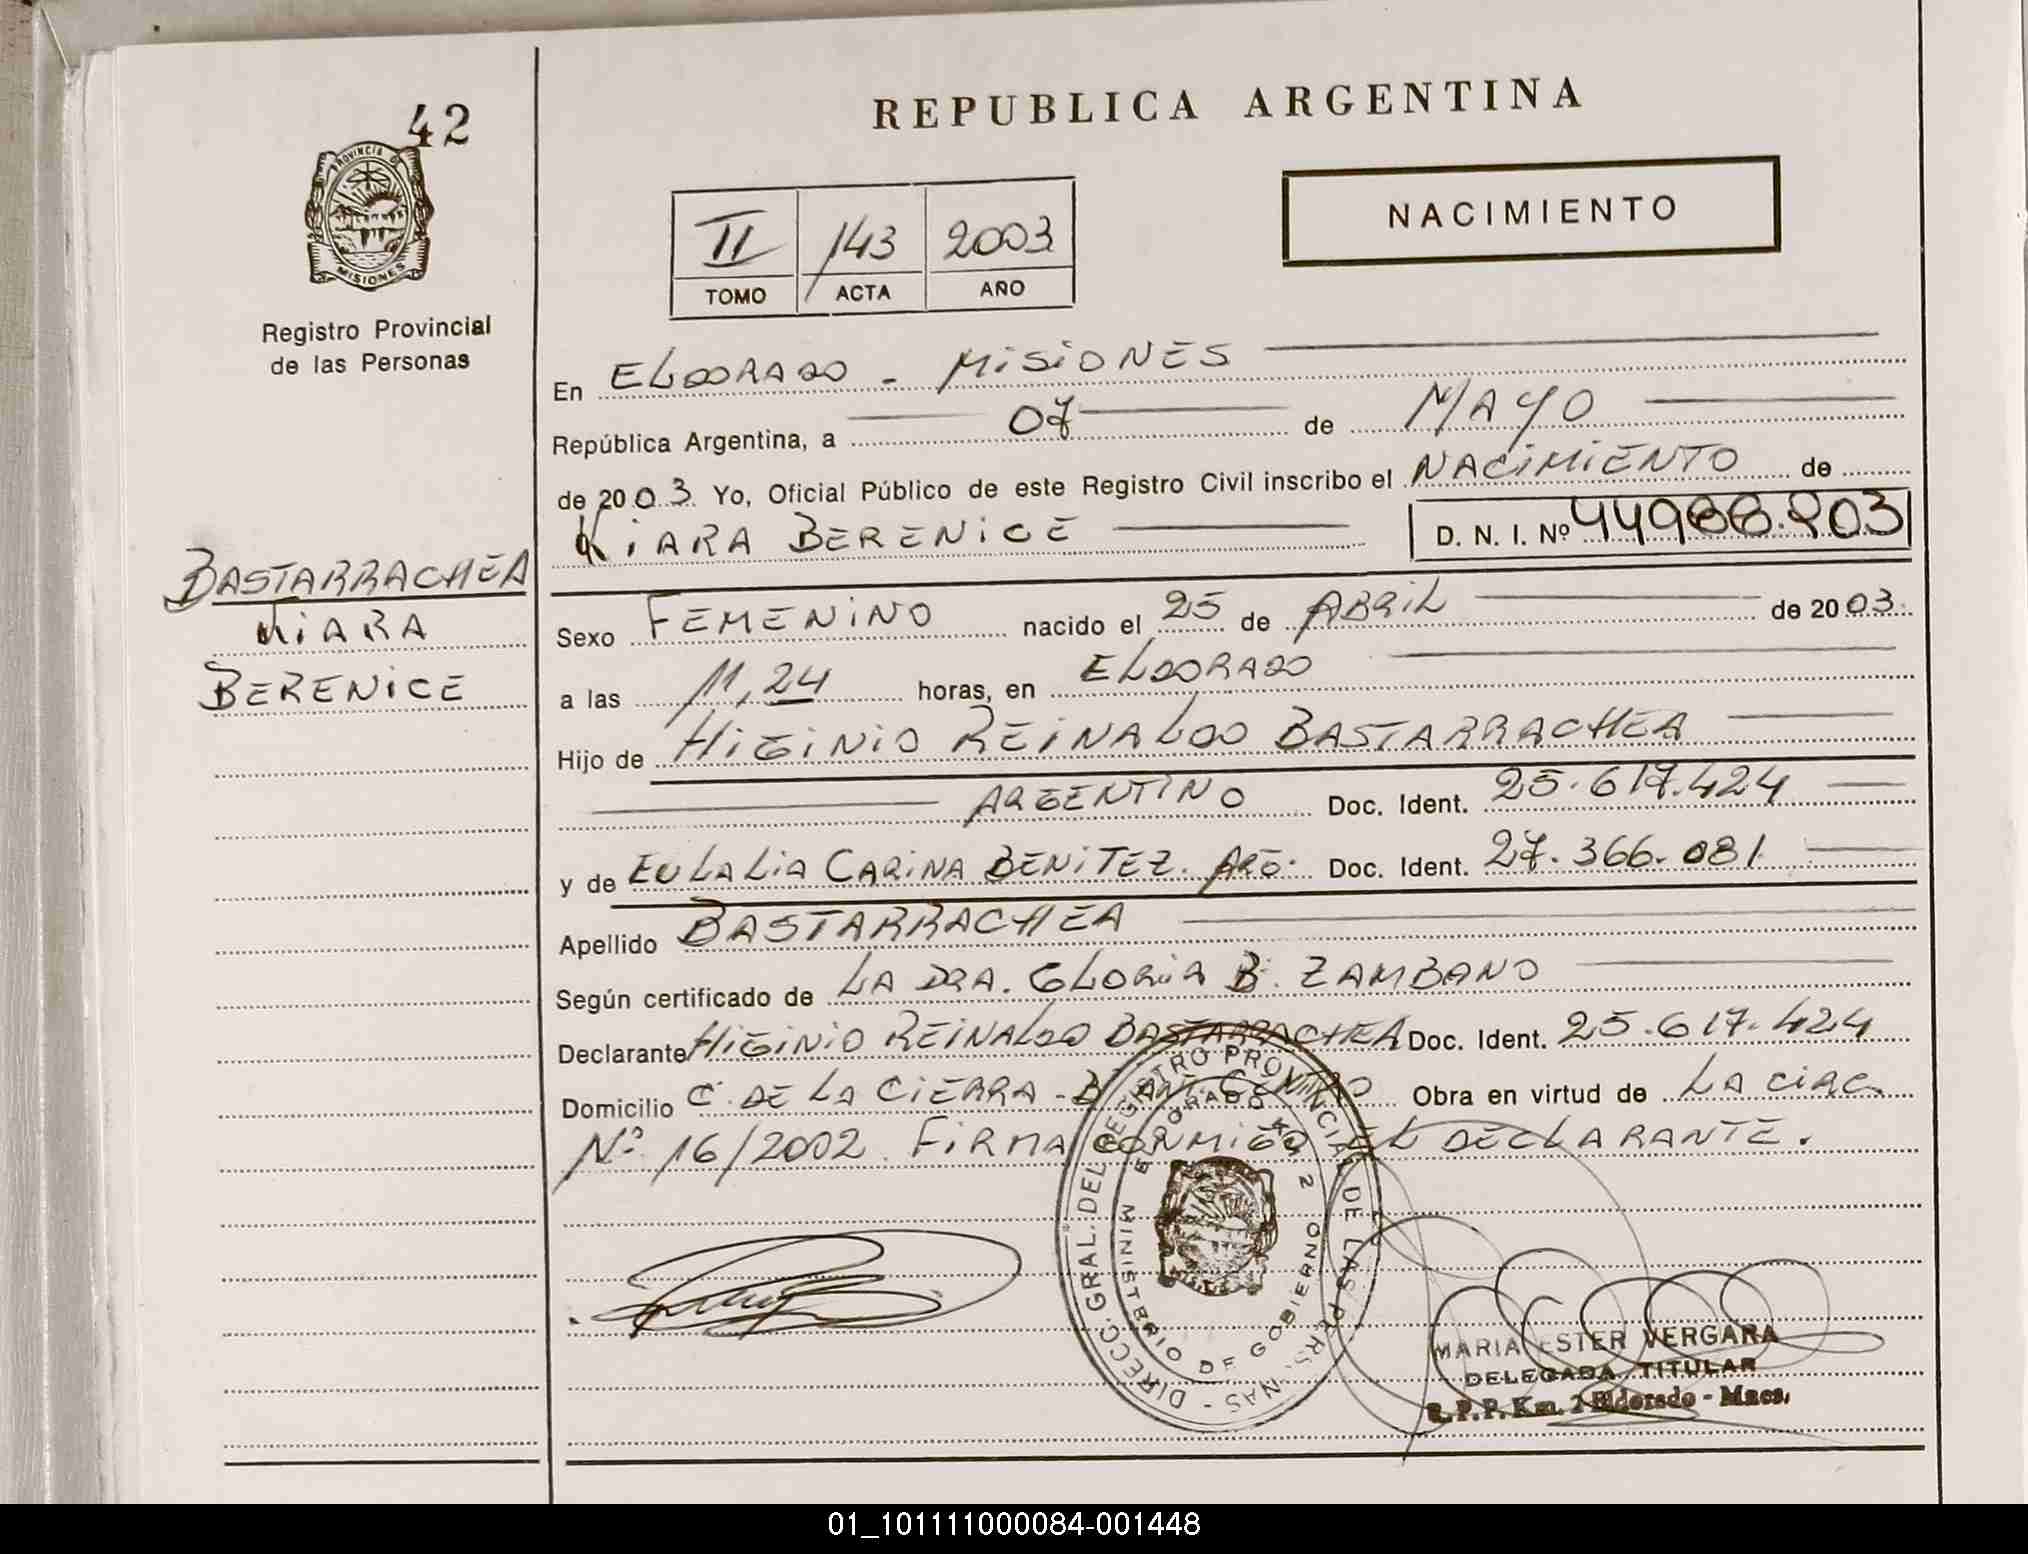 42
PROVINCIA DE
MISIONES
Registro Provincial
de las Personas
REPUBLICA ARGENTINA
NACIMIENTO
II 143 2003
TOMO ACTA AÑO
En ELDORADO - MISIONES
República Argentina, a 07 de MAYO
de 2003 Yo, Oficial Público de este Registro Civil inscribo el NACIMIENTO de
KIARA BERENICE D. N. I. Nº
BASTARRACHEA
KIARA
BERENICE
Sexo FEMENINO nacido el 25 de ABRIL de 2003
a las 11,24 horas, en ELDORADO
Hijo de HIGINIO REINALDO BASTARRACHEA
ARGENTINO Doc. Ident. 25.617.424
y de EULALIA CARINA BENITEZ. ARG. Doc. Ident. 27.366.081
Apellido BASTARRACHEA
Según certificado de LA DRA. GLORIA B. ZAMBANO
Declarante HIGINIO REINALDO BASTARRACHEA Doc. Ident. 25.617.424
Domicilio C. DE LA CIERRA - Obra en virtud de LA CIRC.
Nº 16/2002. FIRMA CONMIGO EL DECLARANTE.
DIRECC. GRAL. DEL REGISTRO PROVINCIAL DE LAS PERSONAS
MINISTERIO DE GOBIERNO
MARIA ESTER VERGARA
DELEGADA TITULAR
R.P.P. Km. 2 Eldorado - Mnes.
01_101111000084-001448